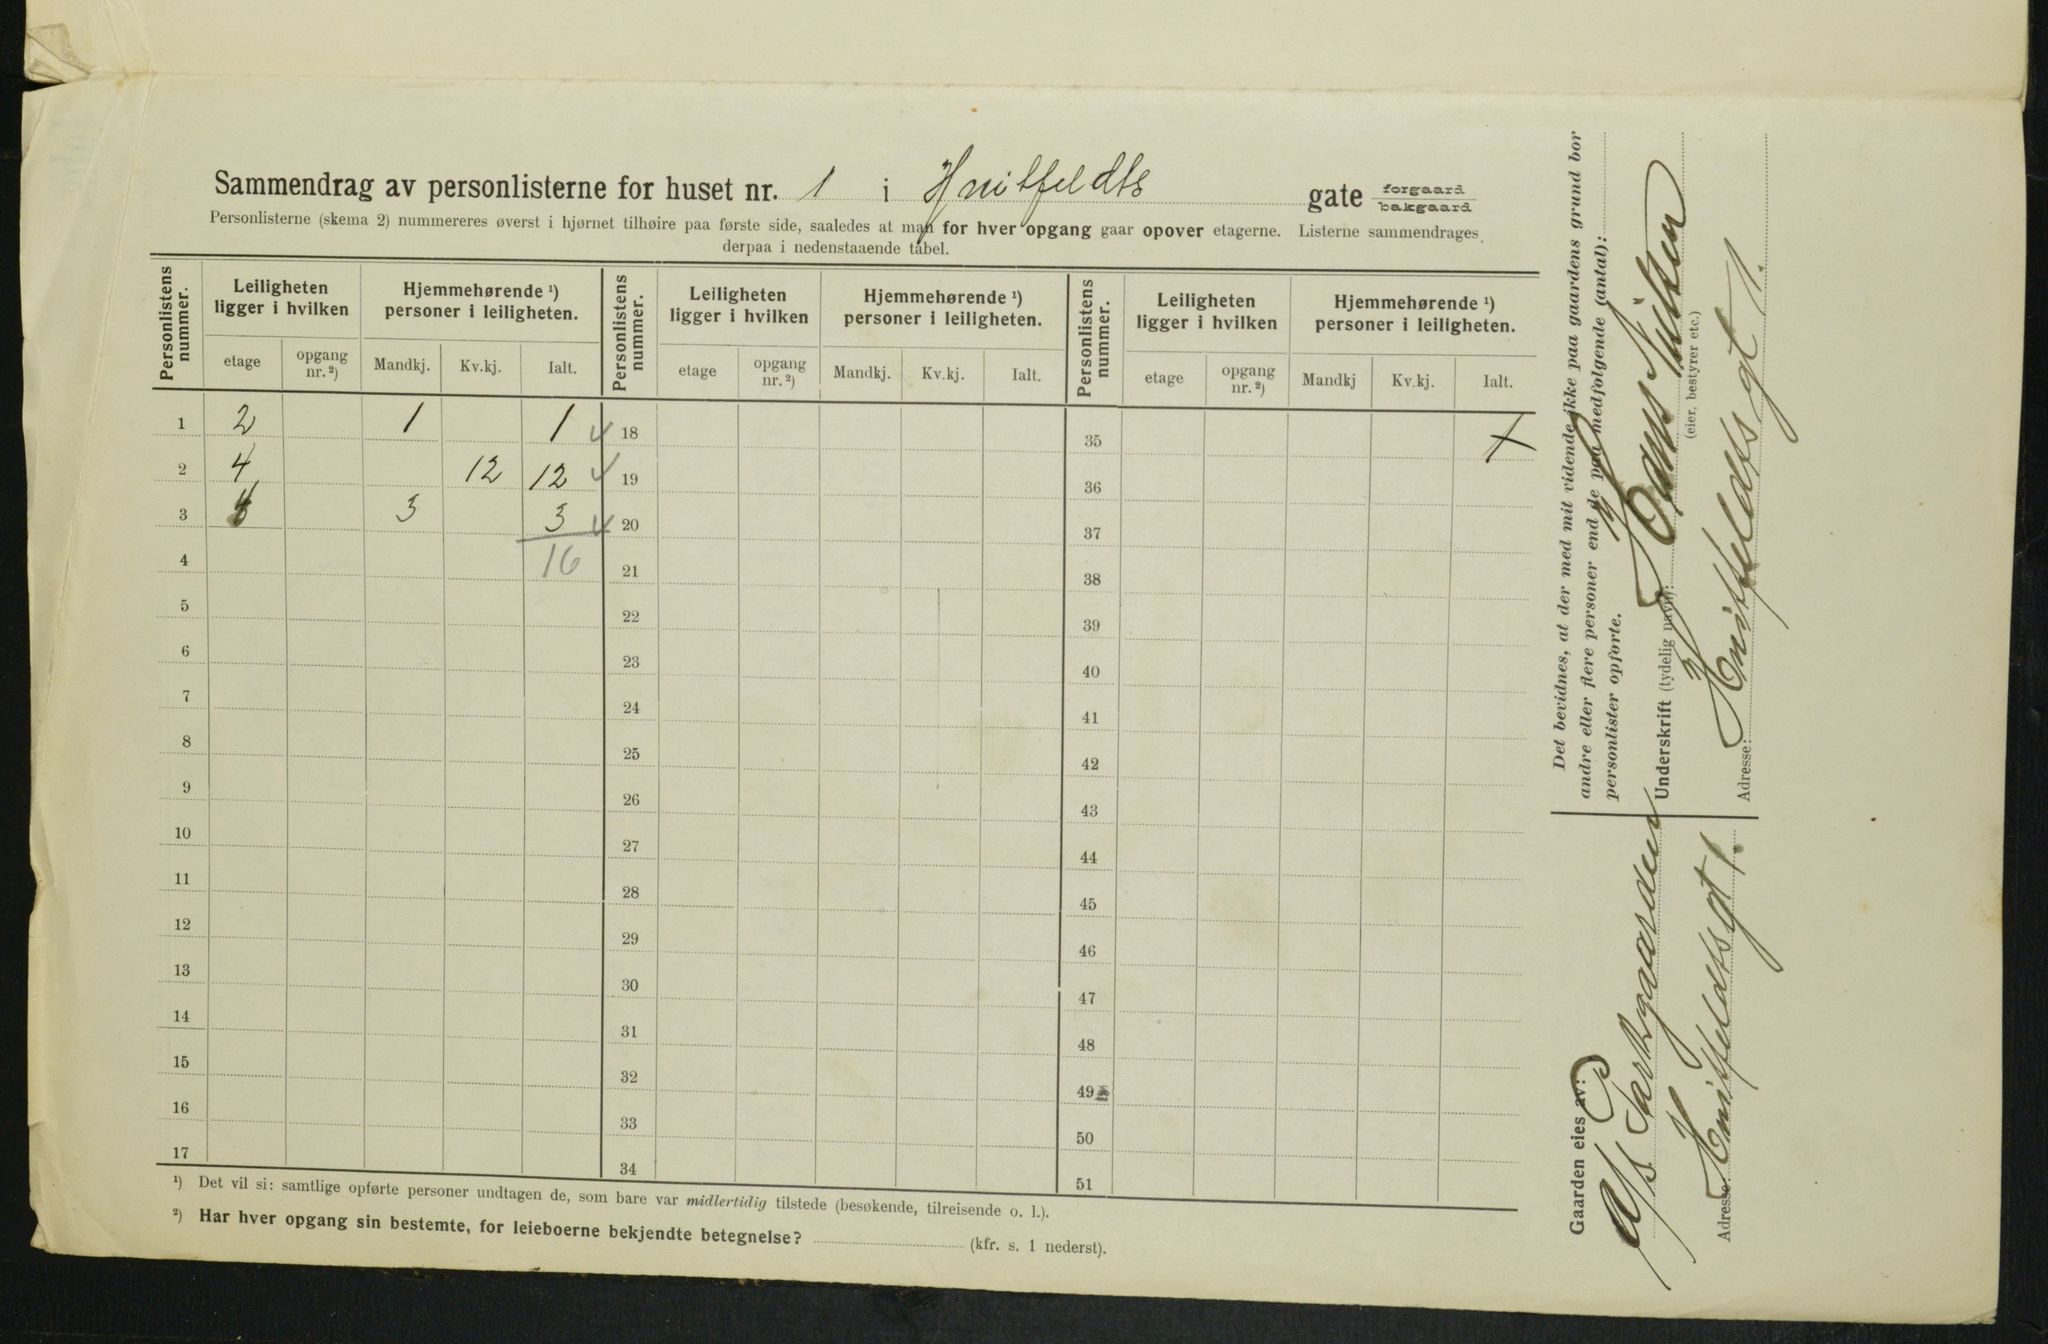 Sammendrag av personlisterne for huset nr. 1 i Hvitfeldts gate forgaard bakgaard
Personlisterne (skema 2) nummereres øverst i hjørnet tilhøire paa første side, saaledes at man for hver opgang gaar opover etagerne. Listerne sammendrages
derpaa i nedenstaaende tabel.
Personlistens nummer. Leiligheten ligger i hvilken Hjemmehørende ¹) personer i leiligheten. Personlistens nummer. Leiligheten ligger i hvilken Hjemmehørende ¹) personer i leiligheten. Personlistens nummer. Leiligheten ligger i hvilken Hjemmehørende ¹) personer i leiligheten.
etage opgang nr. ²) Mandkj. Kv.kj. Ialt. etage opgang nr. ²) Mandkj. Kv.kj. Ialt. etage opgang nr. ²) Mandkj Kv.kj. Ialt.
1 2 1 1 18 35
2 4 12 12 19 36
3 3 3 20 37
4 16 21 38
5 22 39
6 23 40
7 24 41
8 25 42
9 26 43
10 27 44
11 28 45
12 29 46
13 30 47
14 31 48
15 32 49
16 33 50
17 34 51
¹) Det vil si: samtlige opførte personer undtagen de, som bare var midlertidig tilstede (besøkende, tilreisende o. l.).
²) Har hver opgang sin bestemte, for leieboerne bekjendte betegnelse? (kfr. s. 1 nederst).
Det bevidnes, at der med mit vidende ikke paa gaardens grund bor
andre eller flere personer end de paa medfølgende (antal):
personlister opførte.
Underskrift (tydelig navn):
(eier, bestyrer etc.)
Adresse: Hvitfeldtsgt 1.
Gaarden eies av:
A/S Parkgaarden
Adresse: Hvitfeldtsgt 1.